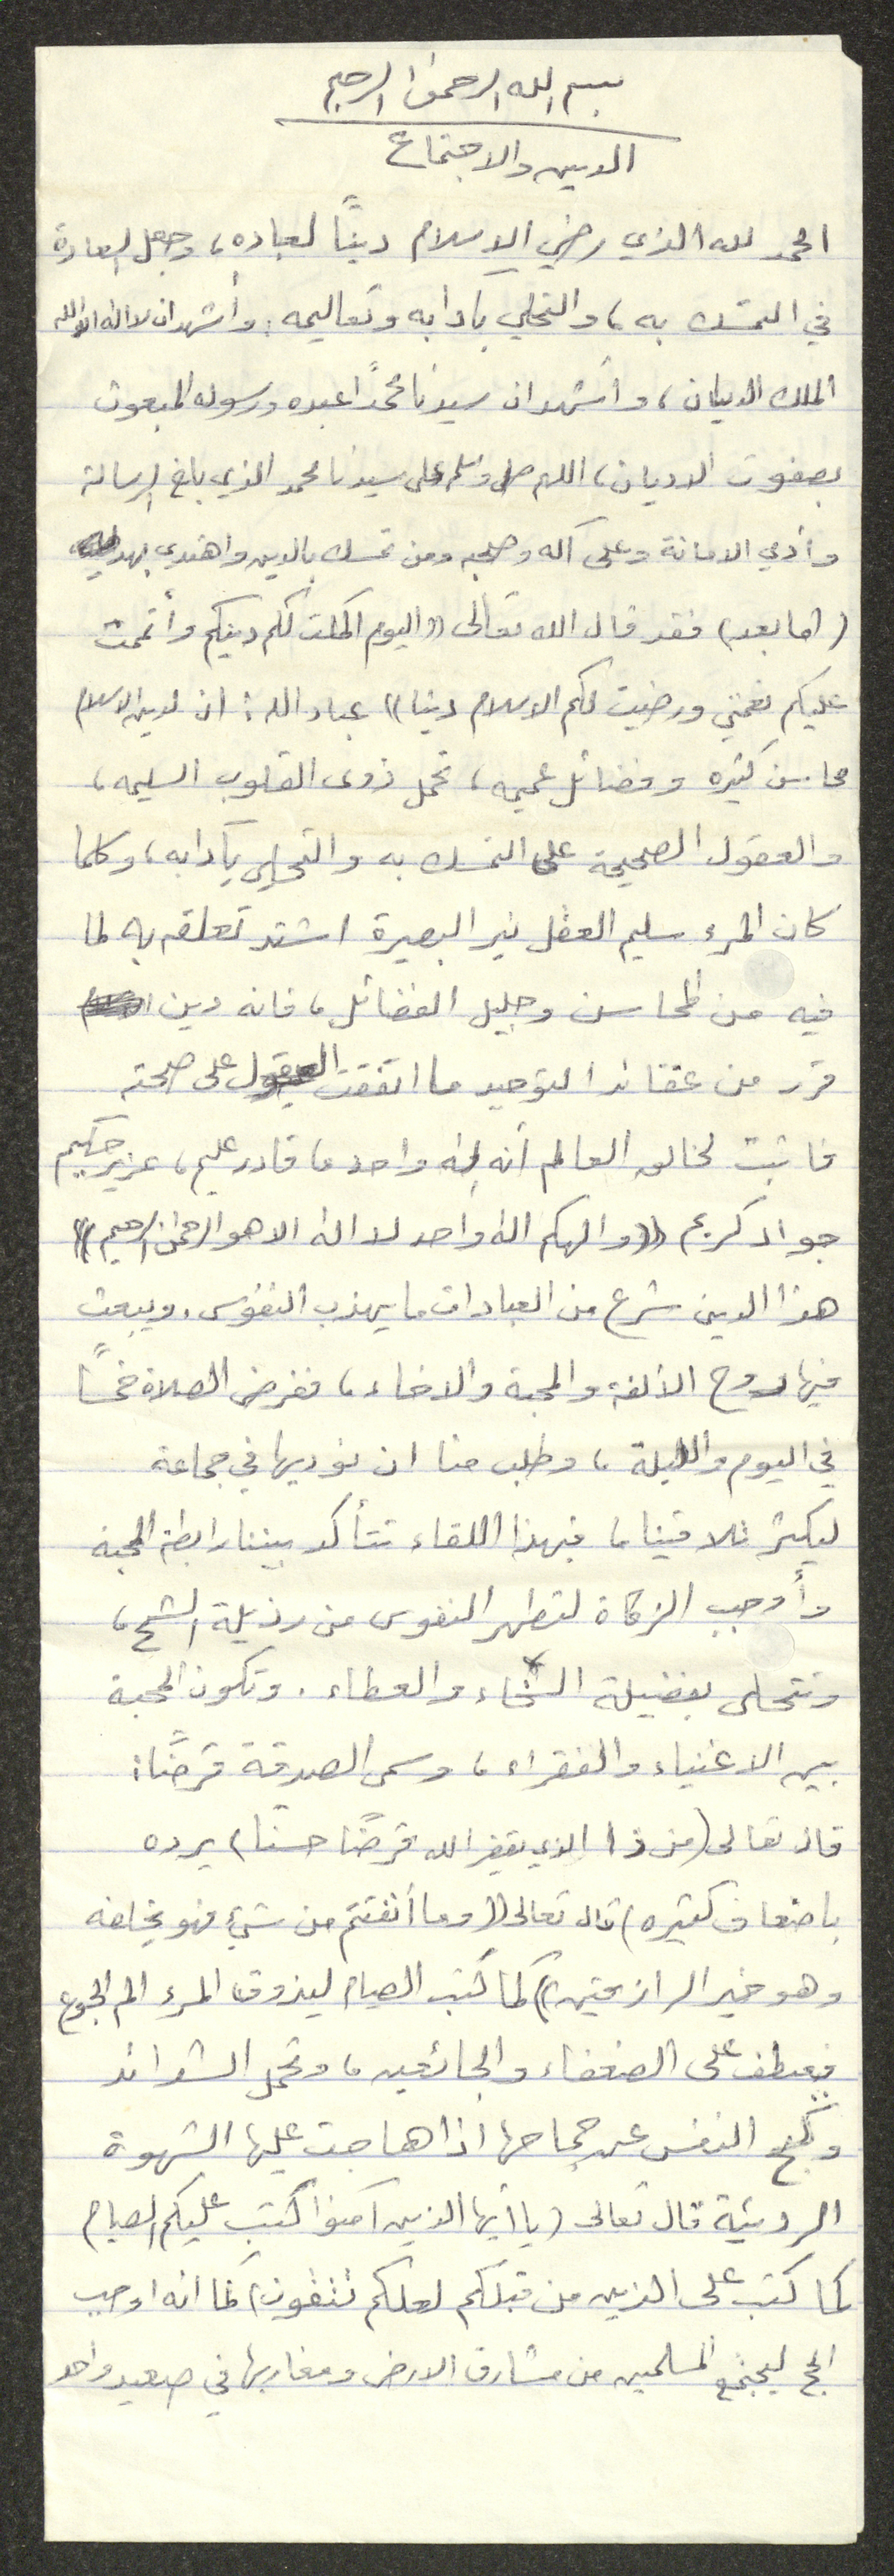 بسم الله الرحمن الرحيم
الدين والاجتماع
الحمد لله الذي رضي الاسلام دينًا لعباده، وجعل السعادة
في التمسك به، والتحلي بآدابه وتعاليمه. وأشهد ان لا اله الا الله
الملك الديان، وأشهد ان سيدنا محمدًا عبده ورسوله المبعوث
بصفوت الاديان، اللهم صل وسلم على سيدنا محمد الذي بلغ الرسالة
وأدي الامانة وعلى آله وصحبه ومن تمسك بالدين واهتدي بهديه
(اما بعد) فقد قال الله تعالى ((اليوم اكملت لكم دينكم وأتممت
عليكم نعمتي ورضيت لكم الاسلام دينا)) عباد الله: ان لدين الاسلام
محاسن كثيره وفضائل عميمه، تحمل ذوى القلوب السليمه،
والعقول الصحيحة على التمسك به والتحلى بآدابه، وكلما
كان المرء سليم العقل نير البصيرة اشتد تعلقه به لما
فيه من المحاسن وجليل الفضائل، فانه دين
قرر من عقائد التوحيد ما اتفقت العقول على صحته
فاثبت لخالق العالم أنه إله واحد، قادر عليم، عزيز حكيم
جواد كريم ((والهكم اله واحد لا اله الا هو الرحمن الرحيم))
هذا الدين شرع من العبادات ما يهذب النفوس، ويبعث
فيها روح الألفة والمحبة والاخاء، ففرض الصلاة خمسًا
في اليوم والليلة، وطلب منا ان نوديها في جماعة
ليكثر تلاقينا، فبهذا اللقاء تتأكد بيننا رابطة المحبة
وأوجب الزكاة لتطهر النفوس من رذيلة الشح،
وتتحلى بفضيلة السخاء والعطاء. وتكون المحبة
بين الاغنياء والفقراء، وسمى الصدقة قرضًا:
قال تعالى (من ذا الذي يقرض الله قرضًا حسنًا) يرده
باضعاف كثيره) قال تعالى ((وما أنفقتم من شيء فهو يخلفه
وهو خير الرازقين)) كما كتب الصيام ليذوق المرء الم الجوع
فيعطف على الضعفاء والجائعين، وتحمل الشدائد
وكبح النفس عن جماحها اذا هاجت عليها الشهوة
الرديئة قال تعالى (يا أيها الذين آمنوا كتب عليكم الصيام
كما كتب على الذين من قبلكم لعلكم تتقون) كما انه اوجب
الحج ليجتمع المسلمين من مشارق الارض ومغاربها في صعيد واحد